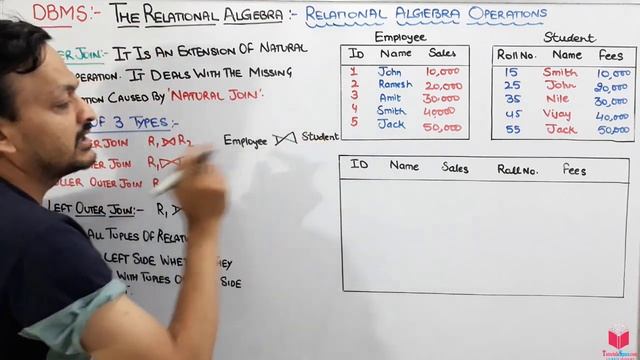 DBMS:- THE RELATIONAL ALGEBRA:- RELATIONAL ALGEBRA OPERATIONS
JOIN:- IT IS AN EXTENSION OF NATURAL
OPERATION. IT DEALS WITH THE MISSING
CAUSED BY 'NATURAL JOIN'.
OF 3 TYPES:-
JOIN R1 ⟕ R2
JOIN R1
OUTER JOIN R
LEFT OUTER JOIN:- R1
ALL TUPLES OF RELATI
LEFT SIDE WHET EY
WITH TUPLES O SIDE
Employee ⟕ Student
Employee
ID Name Sales
1 John 10,000
2 Ramesh 20,000
3 Amit 30,000
4 Smith 40000
5 Jack 50,000
Student
Roll No. Name Fees
15 Smith 10,000
25 John 20,000
35 Nile 30,000
45 Vijay 40,000
55 Jack 50,000
ID Name Sales Roll No. Fees